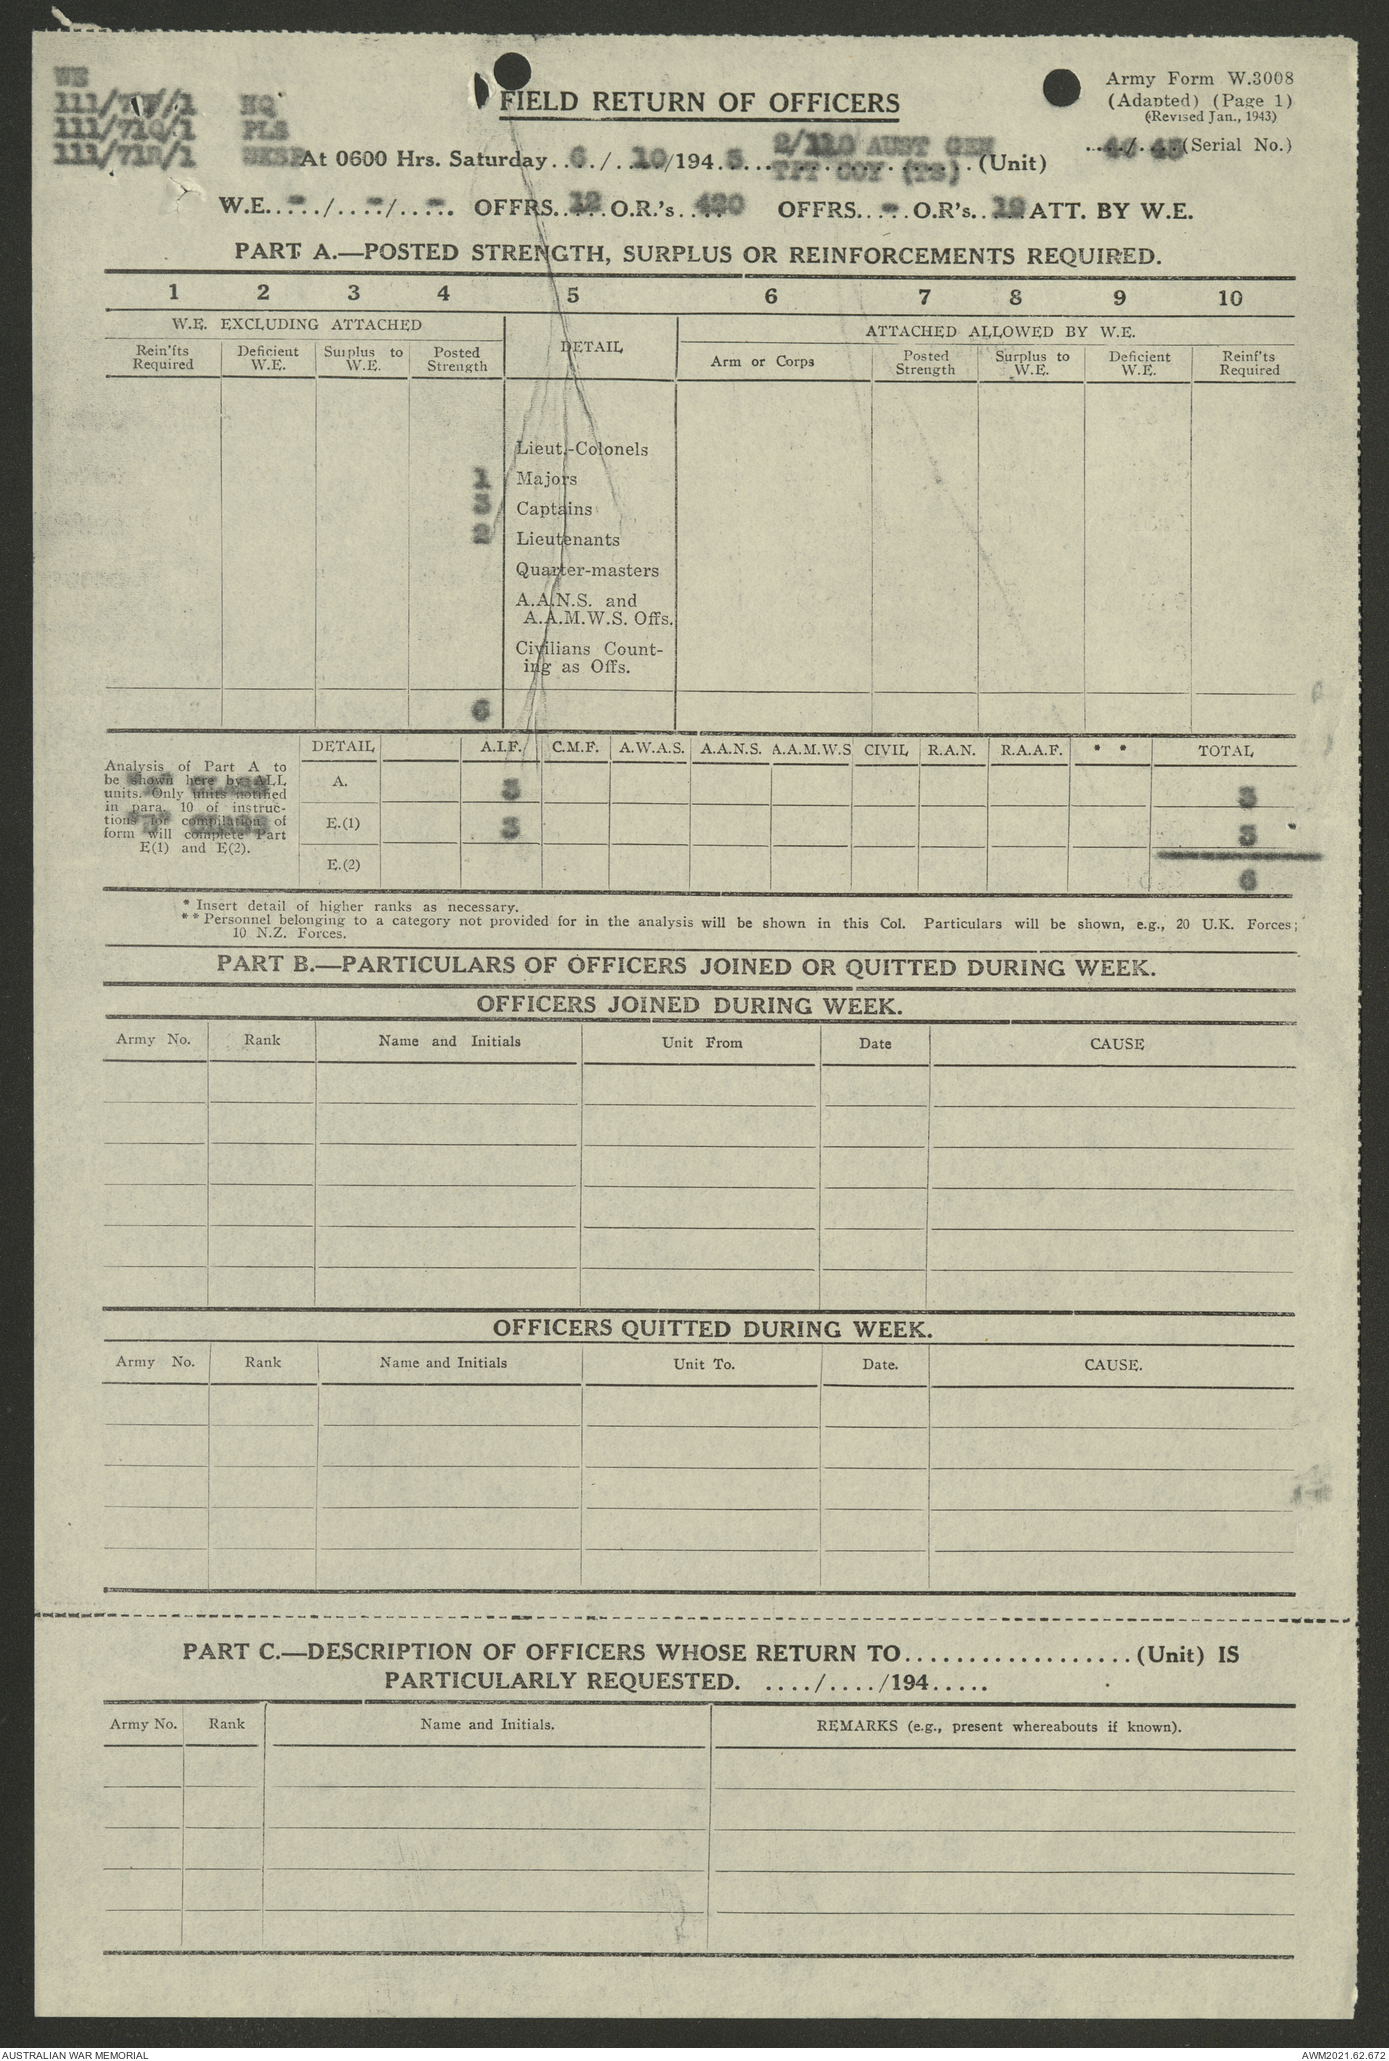 WE
111/71P/1 HQ
111/71Q/1 PLS
111/71R/1 WKSP
FIELD RETURN OF OFFICERS
Army Form W.3008
(Adapted) (Page 1)
(Revised Jan., 1943)
At 0600 Hrs. Saturday..6./..10/194.5... 2/110 AUST GEN TPT COY (TS) (Unit)
(Serial No.)
W.E..-../..-../..-.. OFFRS..12.O.R.'s..420 OFFRS..-.O.R's..19 ATT. BY W.E.
PART A.—POSTED STRENGTH, SURPLUS OR REINFORCEMENTS REQUIRED.
1 2 3 4 5 6 7 8 9 10
W.E. EXCLUDING ATTACHED DETAIL ATTACHED ALLOWED BY W.E.
Rein'fts Required Deficient W.E. Surplus to W.E. Posted Strength Arm or Corps Posted Strength Surplus to W.E. Deficient W.E. Reinf'ts Required
Lieut.-Colonels
1 Majors
3 Captains
2 Lieutenants
Quarter-masters
A.A.N.S. and
A.A.M.W.S. Offs.
Civilians Count-
ing as Offs.
6
DETAIL A.I.F. C.M.F. A.W.A.S. A.A.N.S. A.A.M.W.S CIVIL R.A.N. R.A.A.F. * * TOTAL
Analysis of Part A to
be shown here by ALL
units. Only units notified
in para. 10 of instruc-
tions for compilation of
form will complete Part
E(1) and E(2).
A. 3 3
E.(1) 3 3
E.(2) 6
* Insert detail of higher ranks as necessary.
** Personnel belonging to a category not provided for in the analysis will be shown in this Col. Particulars will be shown, e.g., 20 U.K. Forces;
10 N.Z. Forces.
PART B.—PARTICULARS OF OFFICERS JOINED OR QUITTED DURING WEEK.
OFFICERS JOINED DURING WEEK.
Army No. Rank Name and Initials Unit From Date CAUSE
OFFICERS QUITTED DURING WEEK.
Army No. Rank Name and Initials Unit To. Date. CAUSE.
PART C.—DESCRIPTION OF OFFICERS WHOSE RETURN TO..................(Unit) IS
PARTICULARLY REQUESTED. ..../..../194.....
Army No. Rank Name and Initials. REMARKS (e.g., present whereabouts if known).
AUSTRALIAN WAR MEMORIAL
AWM2021.62.672